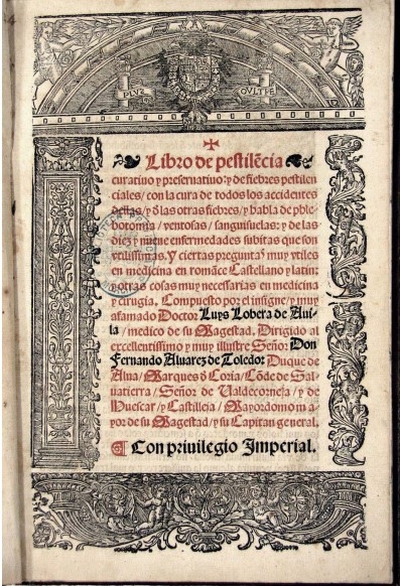 PLVS OVLTRE
Libro de pestilẽcia
curatiuo y preseruatiuo: y de fiebres pestilen
ciales, con la cura de todos los accidentes
dellas, y d̓ las otras fiebres, y habla de phle-
botomia, ventosas, sanguisuelas: y de las
diez y nueue enfermedades subitas que son
vtilissimas. Y ciertas preguntas muy vtiles
en medicina en romãce Castellano y latin:
y otras cosas muy necessarias en medicina
y cirugia. Compuesto por el insigne, y muy
afamado Doctor Luys Lobera de Aui-
la / medico de su Magestad. Dirigido al
excellentissimo y muy illustre Señor Don
Fernando Aluarez de Toledo: Duque de
Alua, Marques d̓ Coria, Cõde de Sal-
uatierra, Señor de Valdecorneja, y de
Huescar, y Castilleia, Mayordomo ma
yor de su Magestad, y su Capitan general.
¶ Con priuilegio Imperial.